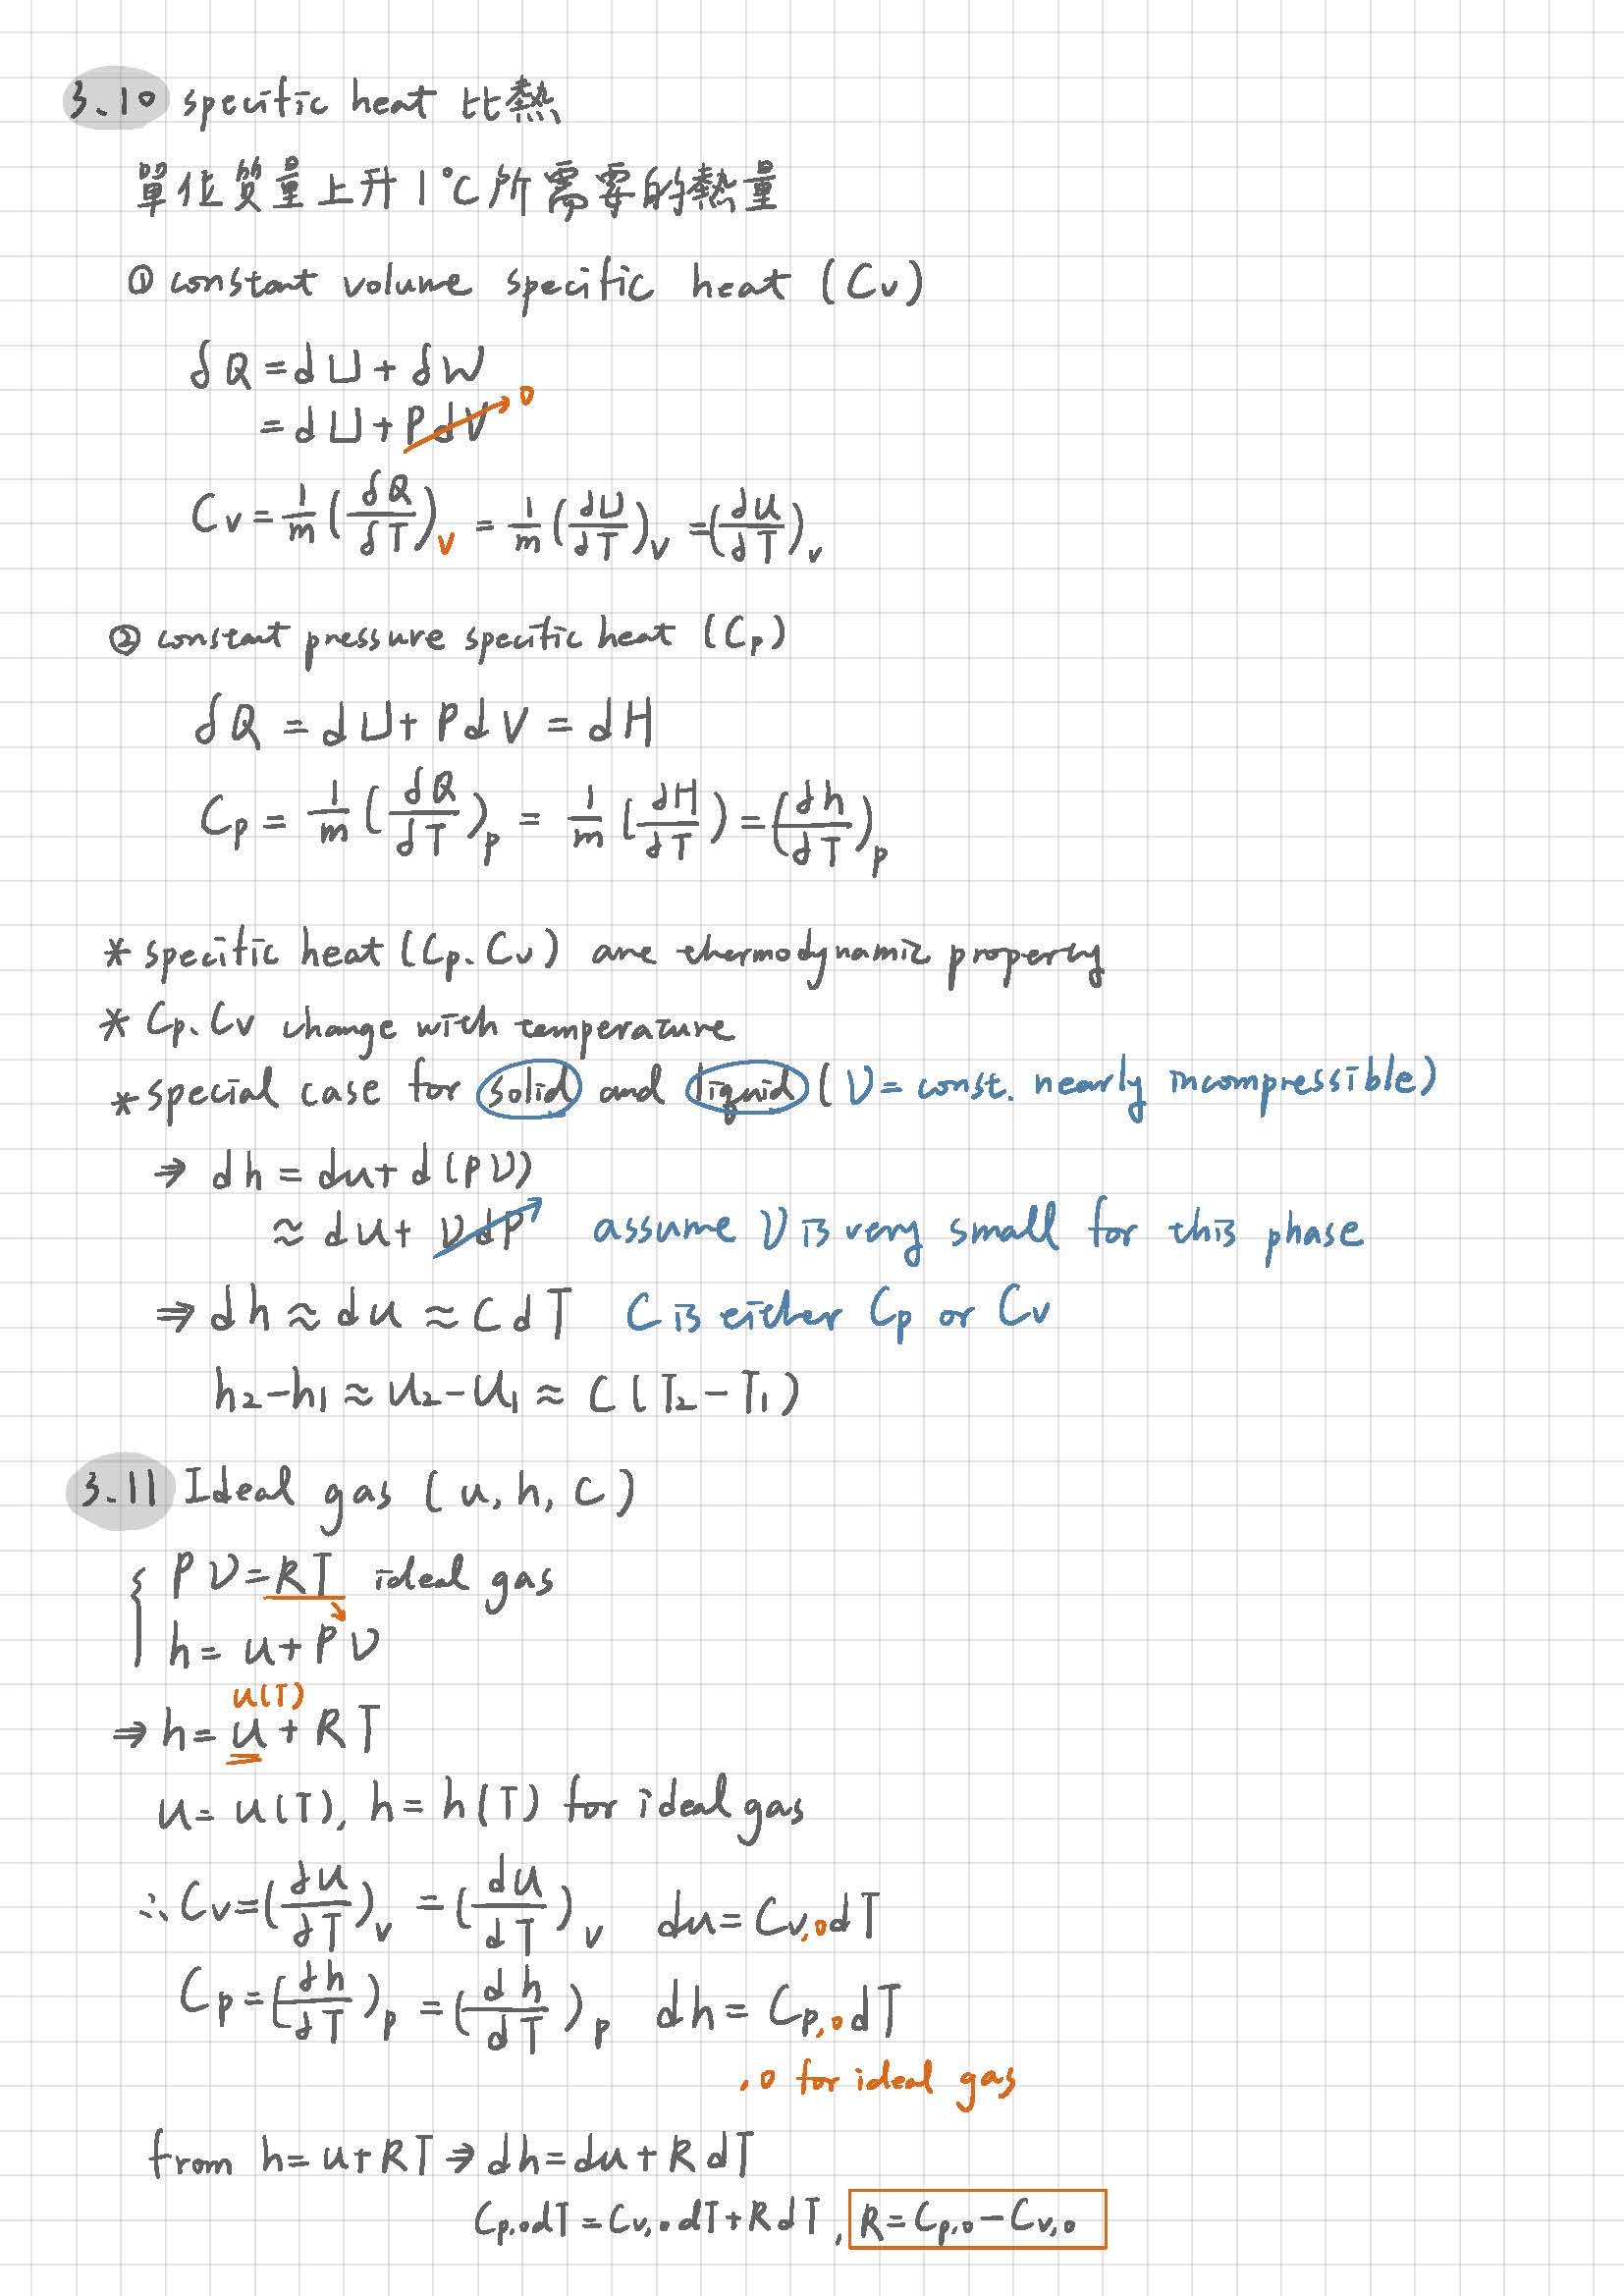 3.10 specific heat 比熱
單位質量上升1°C所需要的熱量
① constant volume specific heat (Cv)
δQ = dU + δW
= dU + PdV → 0
Cv = 1/m (δQ/δT)v = 1/m (dU/dT)v = (du/dT)v
② constant pressure specific heat (Cp)
δQ = dU + PdV = dH
Cp = 1/m (δQ/dT)p = 1/m (dH/dT) = (dh/dT)p
* specific heat (Cp、Cv) are thermodynamic property
* Cp、Cv change with temperature
* special case for solid and liquid (ν = const. nearly incompressible)
⇒ dh = du + d(Pν)
≈ du + νdP assume ν is very small for this phase
⇒ dh ≈ du ≈ CdT C is either Cp or Cv
h2 - h1 ≈ u2 - u1 ≈ C(T2 - T1)
3.11 Ideal gas (u, h, C)
{ Pν = RT ideal gas
h = u + Pν
u(T)
⇒ h = u + RT
u = u(T), h = h(T) for ideal gas
∴ Cv = (∂u/∂T)v = (du/dT)v du = Cv,0 dT
Cp = (∂h/∂T)p = (dh/dT)p dh = Cp,0 dT
,0 for ideal gas
from h = u + RT ⇒ dh = du + RdT
Cp,0 dT = Cv,0 dT + RdT, R = Cp,0 - Cv,0